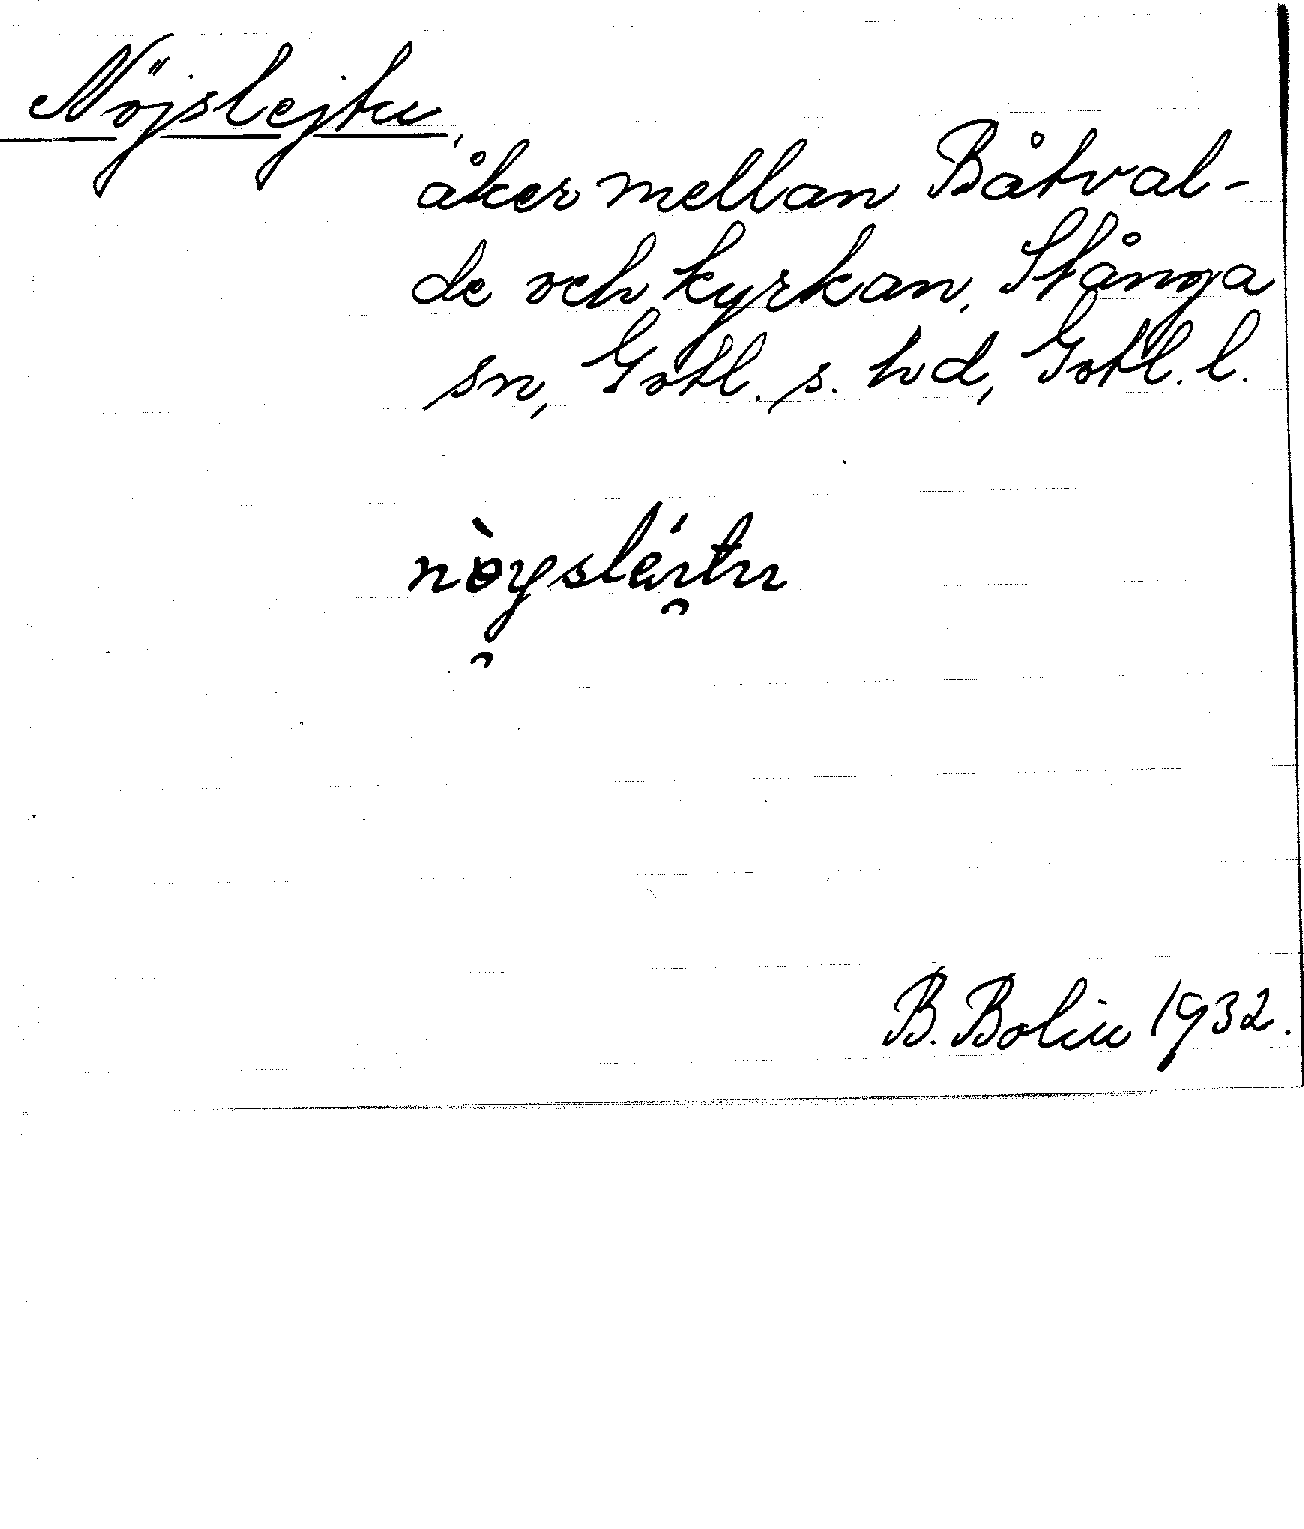 Nöjslejtu,
åker mellan Båtval-
de och kyrkan, Stånga
sn, Gotl. s. hd, Gotl. l.
nòi̯sléi̯tu
B. Bolin 1932.